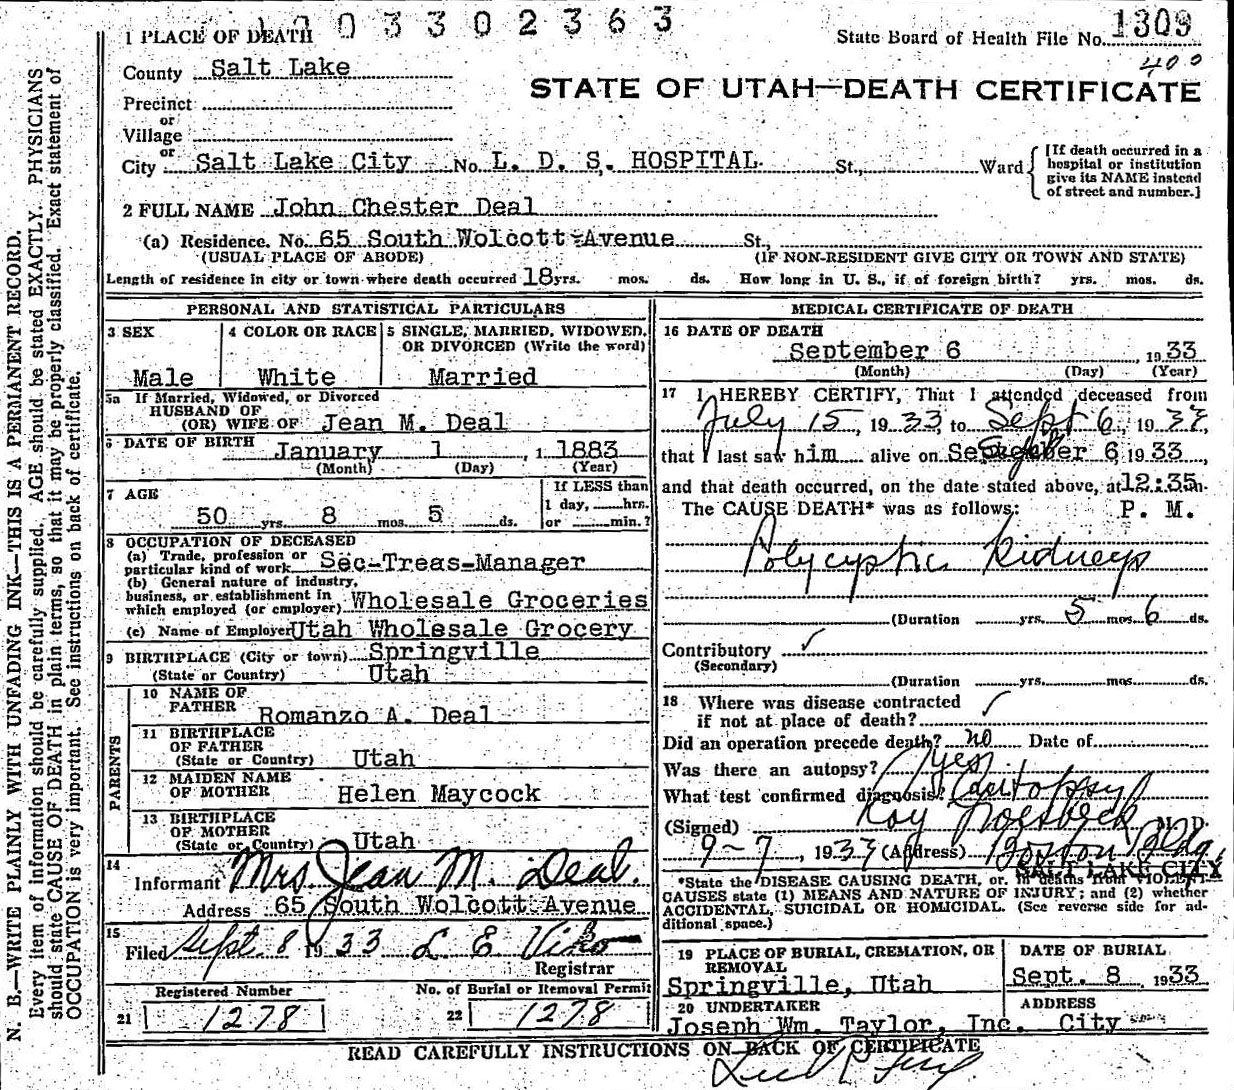 1003302363
1 PLACE OF DEATH
State Board of Health File No. 1309
400
County Salt Lake
STATE OF UTAH—DEATH CERTIFICATE
Precinct
or
Village
or
City Salt Lake City No. L. D. S. HOSPITAL St., Ward
[If death occurred in a
hospital or institution
give its NAME instead
of street and number.]
2 FULL NAME John Chester Deal
(a) Residence. No. 65 South Wolcott Avenue St.,
(USUAL PLACE OF ABODE) (IF NON-RESIDENT GIVE CITY OR TOWN AND STATE)
Length of residence in city or town where death occurred 18 yrs. mos. ds. How long in U. S., if of foreign birth? yrs. mos. ds.
PERSONAL AND STATISTICAL PARTICULARS
3 SEX
Male
4 COLOR OR RACE
White
5 SINGLE, MARRIED, WIDOWED,
OR DIVORCED (Write the word)
Married
5a If Married, Widowed, or Divorced
HUSBAND OF
(OR) WIFE OF Jean M. Deal
6 DATE OF BIRTH January 1, 1883
(Month) (Day) (Year)
7 AGE
50 yrs. 8 mos. 5 ds.
If LESS than
1 day, hrs.
or min.?
8 OCCUPATION OF DECEASED
(a) Trade, profession or
particular kind of work Sec-Treas-Manager
(b) General nature of industry,
business, or establishment in
which employed (or employer) Wholesale Groceries
(c) Name of Employer Utah Wholesale Grocery
9 BIRTHPLACE (City or town) Springville
(State or Country) Utah
PARENTS
10 NAME OF
FATHER Romanzo A. Deal
11 BIRTHPLACE
OF FATHER
(State or Country) Utah
12 MAIDEN NAME
OF MOTHER Helen Maycock
13 BIRTHPLACE
OF MOTHER
(State or Country) Utah
14
Informant Mrs. Jean M. Deal.
Address 65 South Wolcott Avenue
15
Filed Sept. 8 1933 L E Viko
Registrar
Registered Number
21 1278
No. of Burial or Removal Permit
22 1278
MEDICAL CERTIFICATE OF DEATH
16 DATE OF DEATH
September 6, 1933
(Month) (Day) (Year)
17 I HEREBY CERTIFY, That I attended deceased from
July 15, 1933, to Sept 6, 1933,
that I last saw him alive on September 6, 1933,
and that death occurred, on the date stated above, at 12:35 m.
The CAUSE DEATH* was as follows: P. M.
Polycystic Kidneys
(Duration yrs. 5 mos. 6 ds.
Contributory ✓
(Secondary)
(Duration yrs. mos. ds.
18 Where was disease contracted
if not at place of death? ✓
Did an operation precede death? no Date of
Was there an autopsy? yes
What test confirmed diagnosis? (autopsy)
(Signed) Roy Groesbeck M. D.
9-7, 1933 (Address) Boston Bldg.
SALT LAKE CITY
*State the DISEASE CAUSING DEATH, or, in deaths from VIOLENT
CAUSES state (1) MEANS AND NATURE OF INJURY; and (2) whether
ACCIDENTAL, SUICIDAL OR HOMICIDAL. (See reverse side for additional space.)
19 PLACE OF BURIAL, CREMATION, OR
REMOVAL
Springville, Utah
DATE OF BURIAL
Sept. 8, 1933
20 UNDERTAKER
Joseph Wm. Taylor, Inc.
ADDRESS
City
READ CAREFULLY INSTRUCTIONS ON BACK OF CERTIFICATE
N. B.—WRITE PLAINLY WITH UNFADING INK—THIS IS A PERMANENT RECORD.
Every item of information should be carefully supplied. AGE should be stated EXACTLY. PHYSICIANS
should state CAUSE OF DEATH in plain terms, so that it may be properly classified. Exact statement of
OCCUPATION is very important. See instructions on back of certificate.